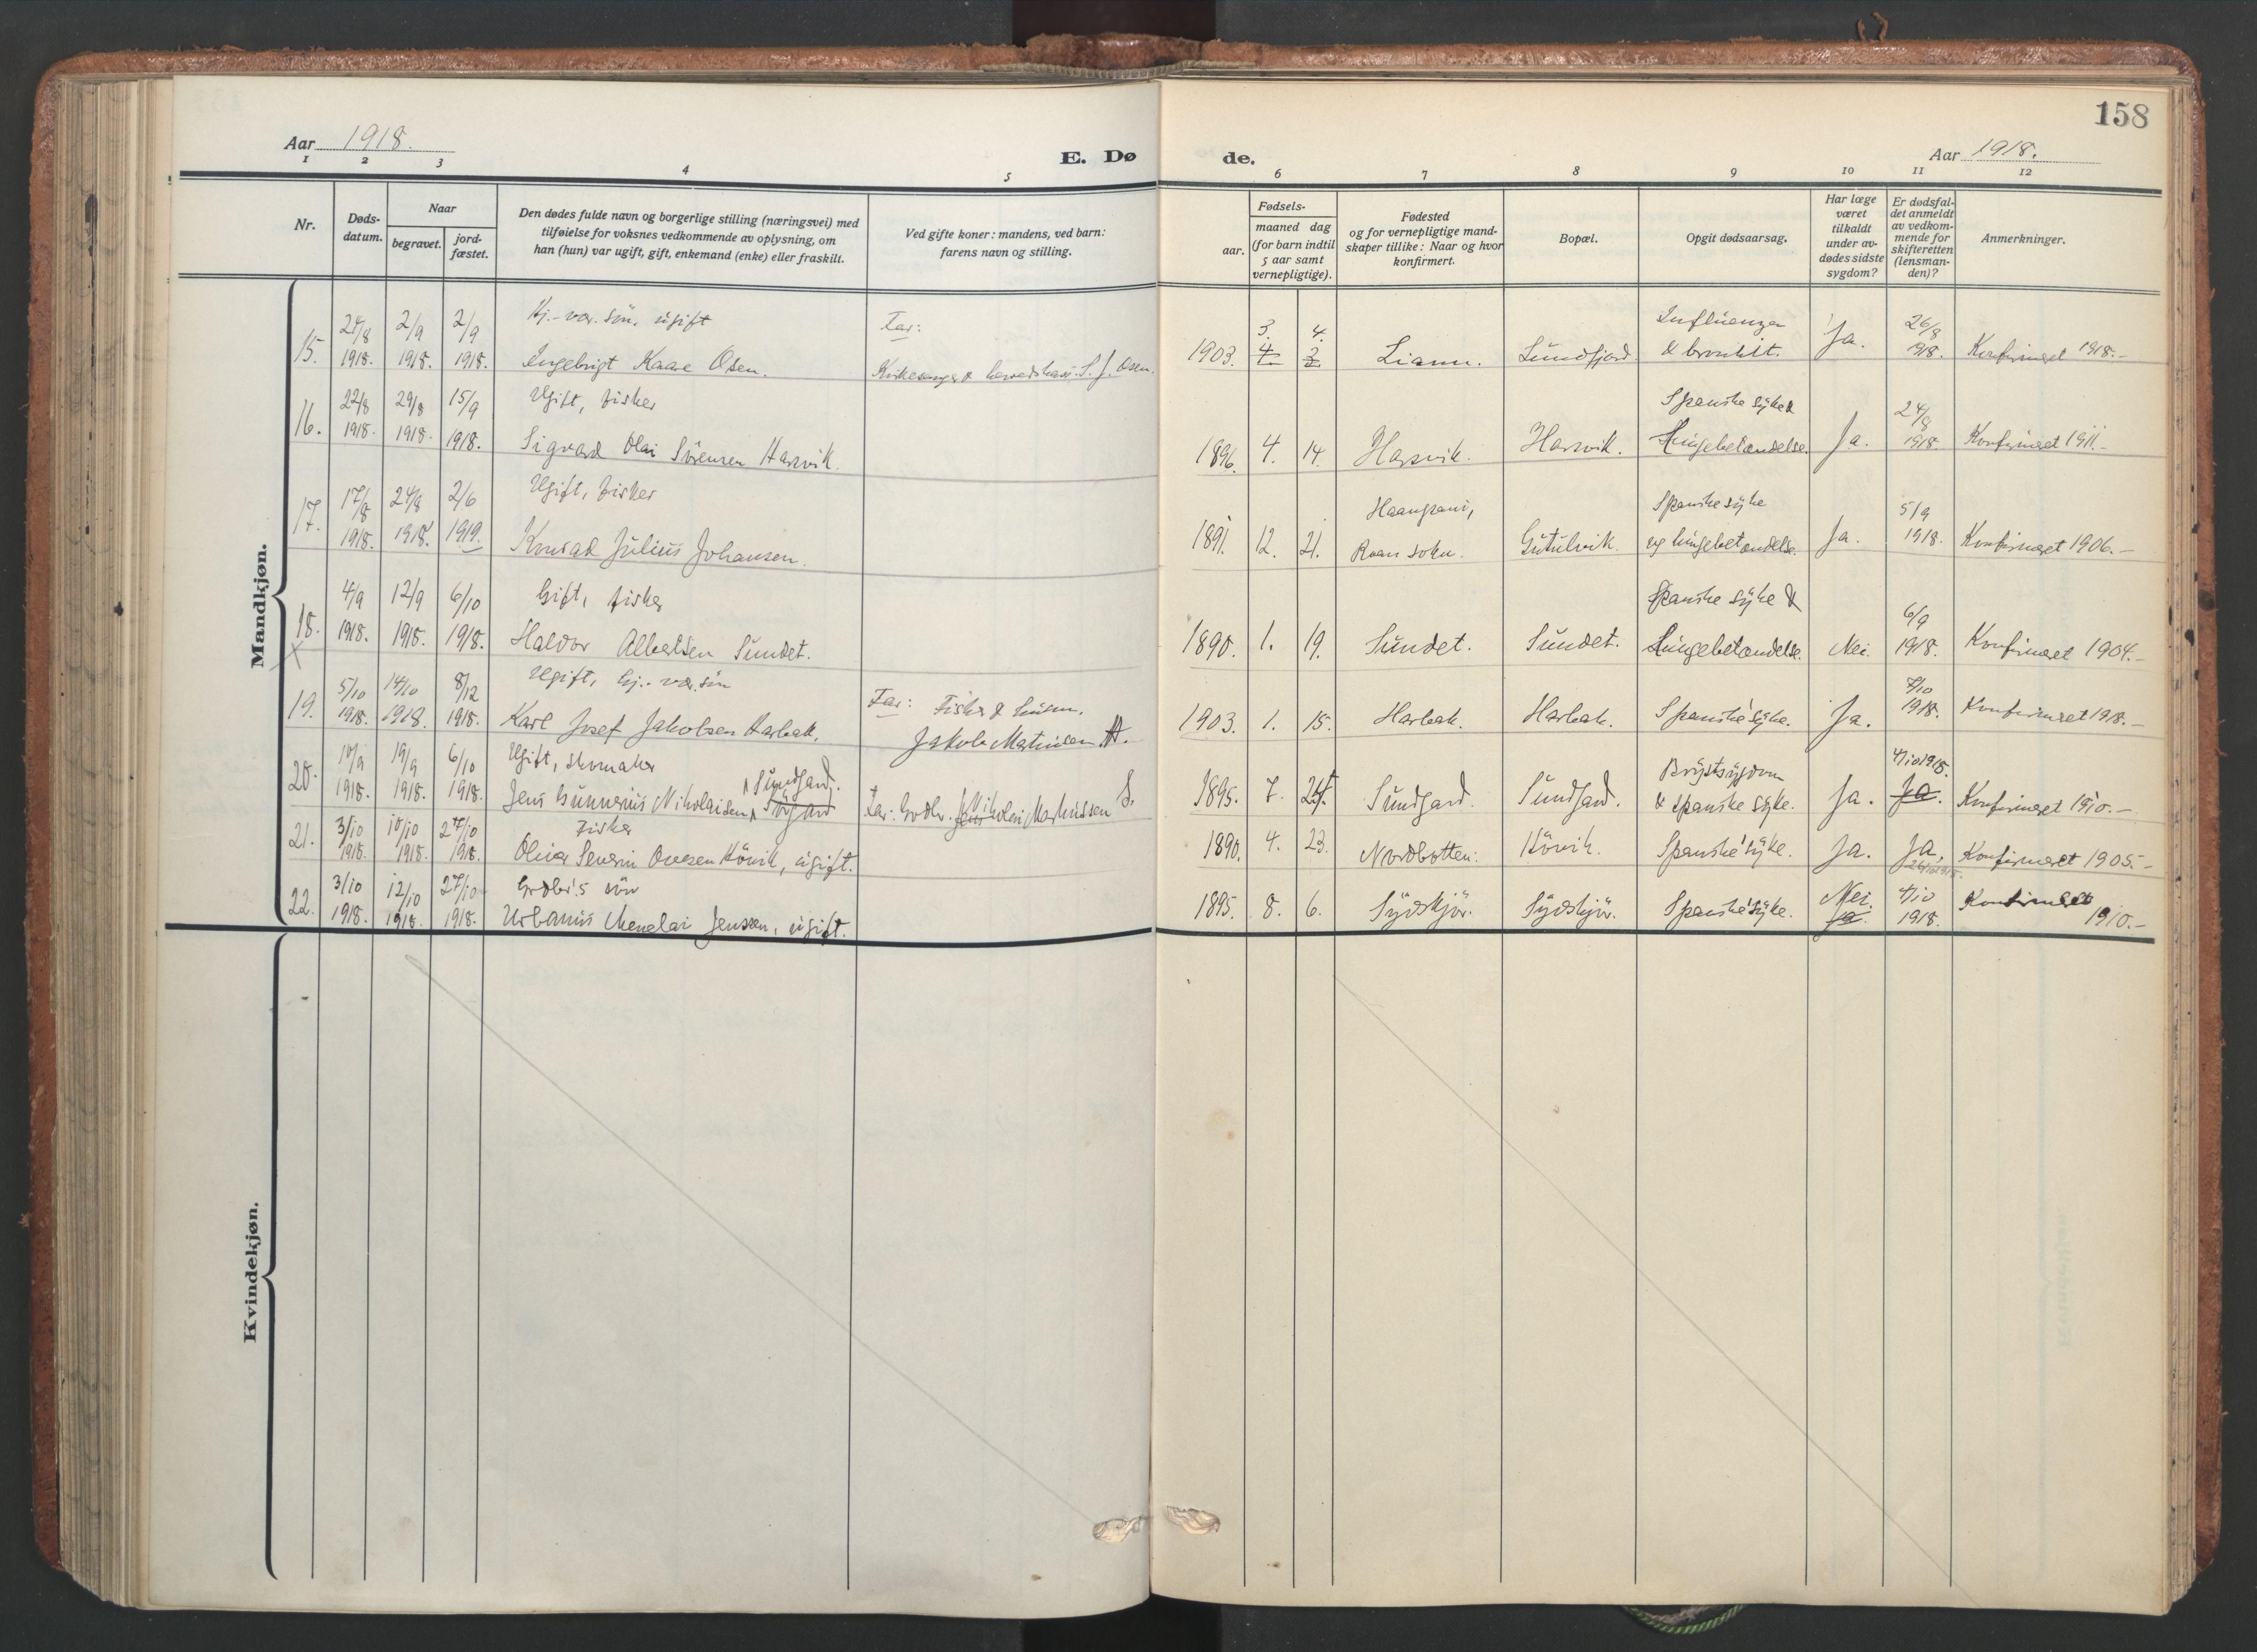 158
Aar 1918.
E. Dø
de.
Aar 1918.
1 2 3 4 5 6 7 8 9 10 11 12
Nr.
Døds-
datum.
Naar
begravet.
jord-
fæstet.
Den dødes fulde navn og borgerlige stilling (næringsvei) med
tilføielse for voksnes vedkommende av oplysning, om
han (hun) var ugift, gift, enkemand (enke) eller fraskilt.
Ved gifte koner: mandens, ved barn:
farens navn og stilling.
Fødsels-
aar.
maaned dag
(for barn indtil
5 aar samt
vernepligtige).
Fødested
og for vernepligtige mand-
skaper tillike: Naar og hvor
konfirmert.
Bopæl.
Opgit dødsaarsag.
Har læge
været
tilkaldt
under av-
dødes sidste
sygdom?
Er dødsfal-
det anmeldt
av vedkom-
mende for
skifteretten
(lensman-
den)?
Anmerkninger.
Mandkjøn.
2/9 2/9 Kj.-vær. sön, ugift Far: 3. 4. Influenza 26/8
15. 1918. 1918. 1918. Ingebrigt Kaare Osen. 1903. 4 2 Liann. Sundfjord & bronkit. Ja. 1918. Konfirmeret 1918.-
22/8 29/8 15/9 Ugift, fisker Spanske syke & 24/8
16. 1918. 1918. 1918. Sigvard Olai Sörensen Harsvik. 1896. 4. 14. Harsvik. Harsvik. Lungebetændelse. Ja. 1918. Konfirmeret 1911.-
17/8 24/8 2/6 Ugift, fisker Spanske syke 5/9
17. 1918. 1918. 1919. Konrad Julius Johansen. 1891. 12. 21. Roan sokn. Gutulvik. og lungebetændelse. Ja. 1918. Konfirmeret 1906.-
4/9 12/9 6/10 Gift, fisker Spanske syke & 6/9
18. 1918. 1918. 1918. Haldor Albertsen Sundet. 1890. 1. 19. Sundet. Sundet. Lungebetændelse. Nei. 1918. Konfirmeret 1904.-
X
5/10 14/10 8/12 Ugift, kj.-vær. sön Far: Fisker & husm. 7/10
19. 1918. 1918. 1918. Karl Josef Jakobsen Harbak. Jakob Martinsen H. 1903. 1. 15. Harbak. Harbak. Spanske syke. Ja. 1918. Konfirmeret 1918.-
19/9 6/10 Ugift, skomaker Sundgard. Brystsygdom 4/10 1918.
20. 1918. 1918. 1918. Jens Gunnerius Nikolaisen Far: Gaardbr. Nikolai Martinssen S. 1895. 7. 24. Sundgard. Sundgard. & spanske syke. Ja. Ja. Konfirmeret 1910.-
3/10 10/10 27/10 Fisker
21. 1918. 1918. 1918. Oliver Severin Ovesen Hövik, ugift. 1890. 4. 23. Nordbotten. Hövik. Spanske syke. Ja. Ja. Konfirmeret 1905.-
3/10 12/10 27/10 Grdbr's sön Nei. 4/10
22. 1918. 1918. 1918. Urbanus Menelai Jenssen, ugift. 1895. 8. 6. Sydskjör. Sydskjör. Spanske syke. Ja. 1918. Konfirmeret
1910.-
Kvindekjøn.